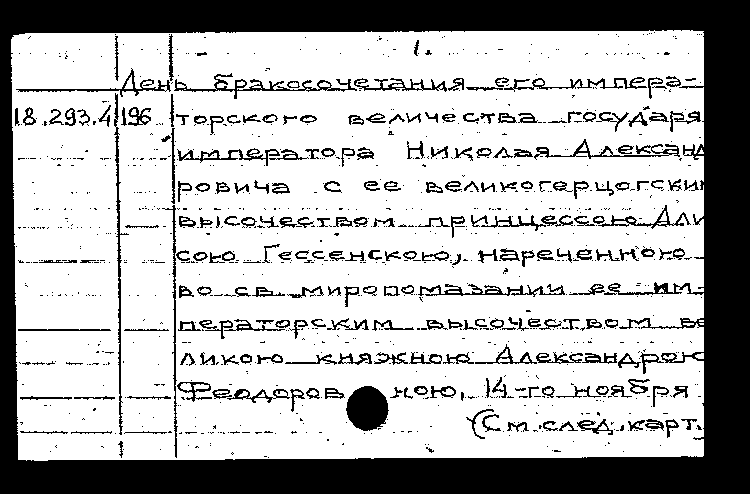 1.
День бракосочетания его импера-
18.293.4 196 торского величества государя
императора Николая Александ
ровича с ее великогерцогским
высочеством принцессою Али
сою Гессенскою, нареченною
во св. миропомазании ее им-
ператорским высочеством ве
ликою княжною Александрою
Феодоровною, 14-го ноября
(См. след. карт.